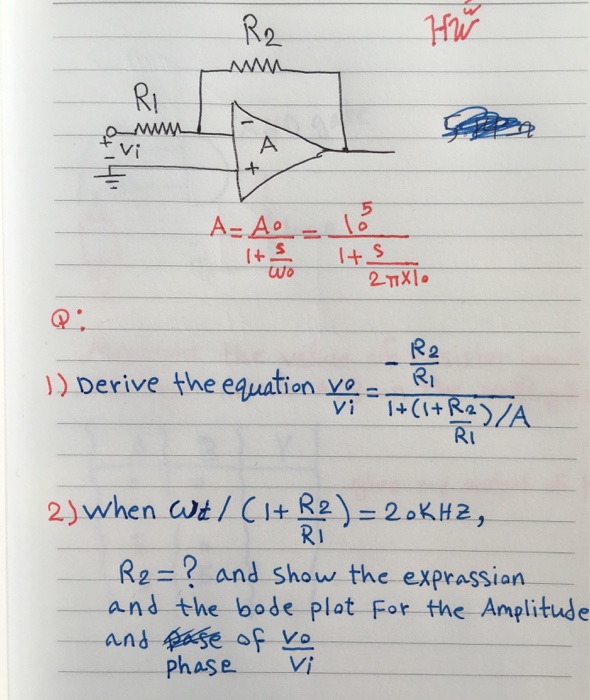 R2
HW
R1
+
Vi
-
-
A
+
A = Ao / (1 + s/ωo) = 10^5 / (1 + s/(2π×10))
Q:
1) Derive the equation vo/vi = (-R2/R1) / (1+(1+R2/R1)/A)
2) when ωt / (1 + R2/R1) = 20KHZ,
R2 = ? and show the exprassion
and the bode plot For the Amplitude
and of vo/vi
phase